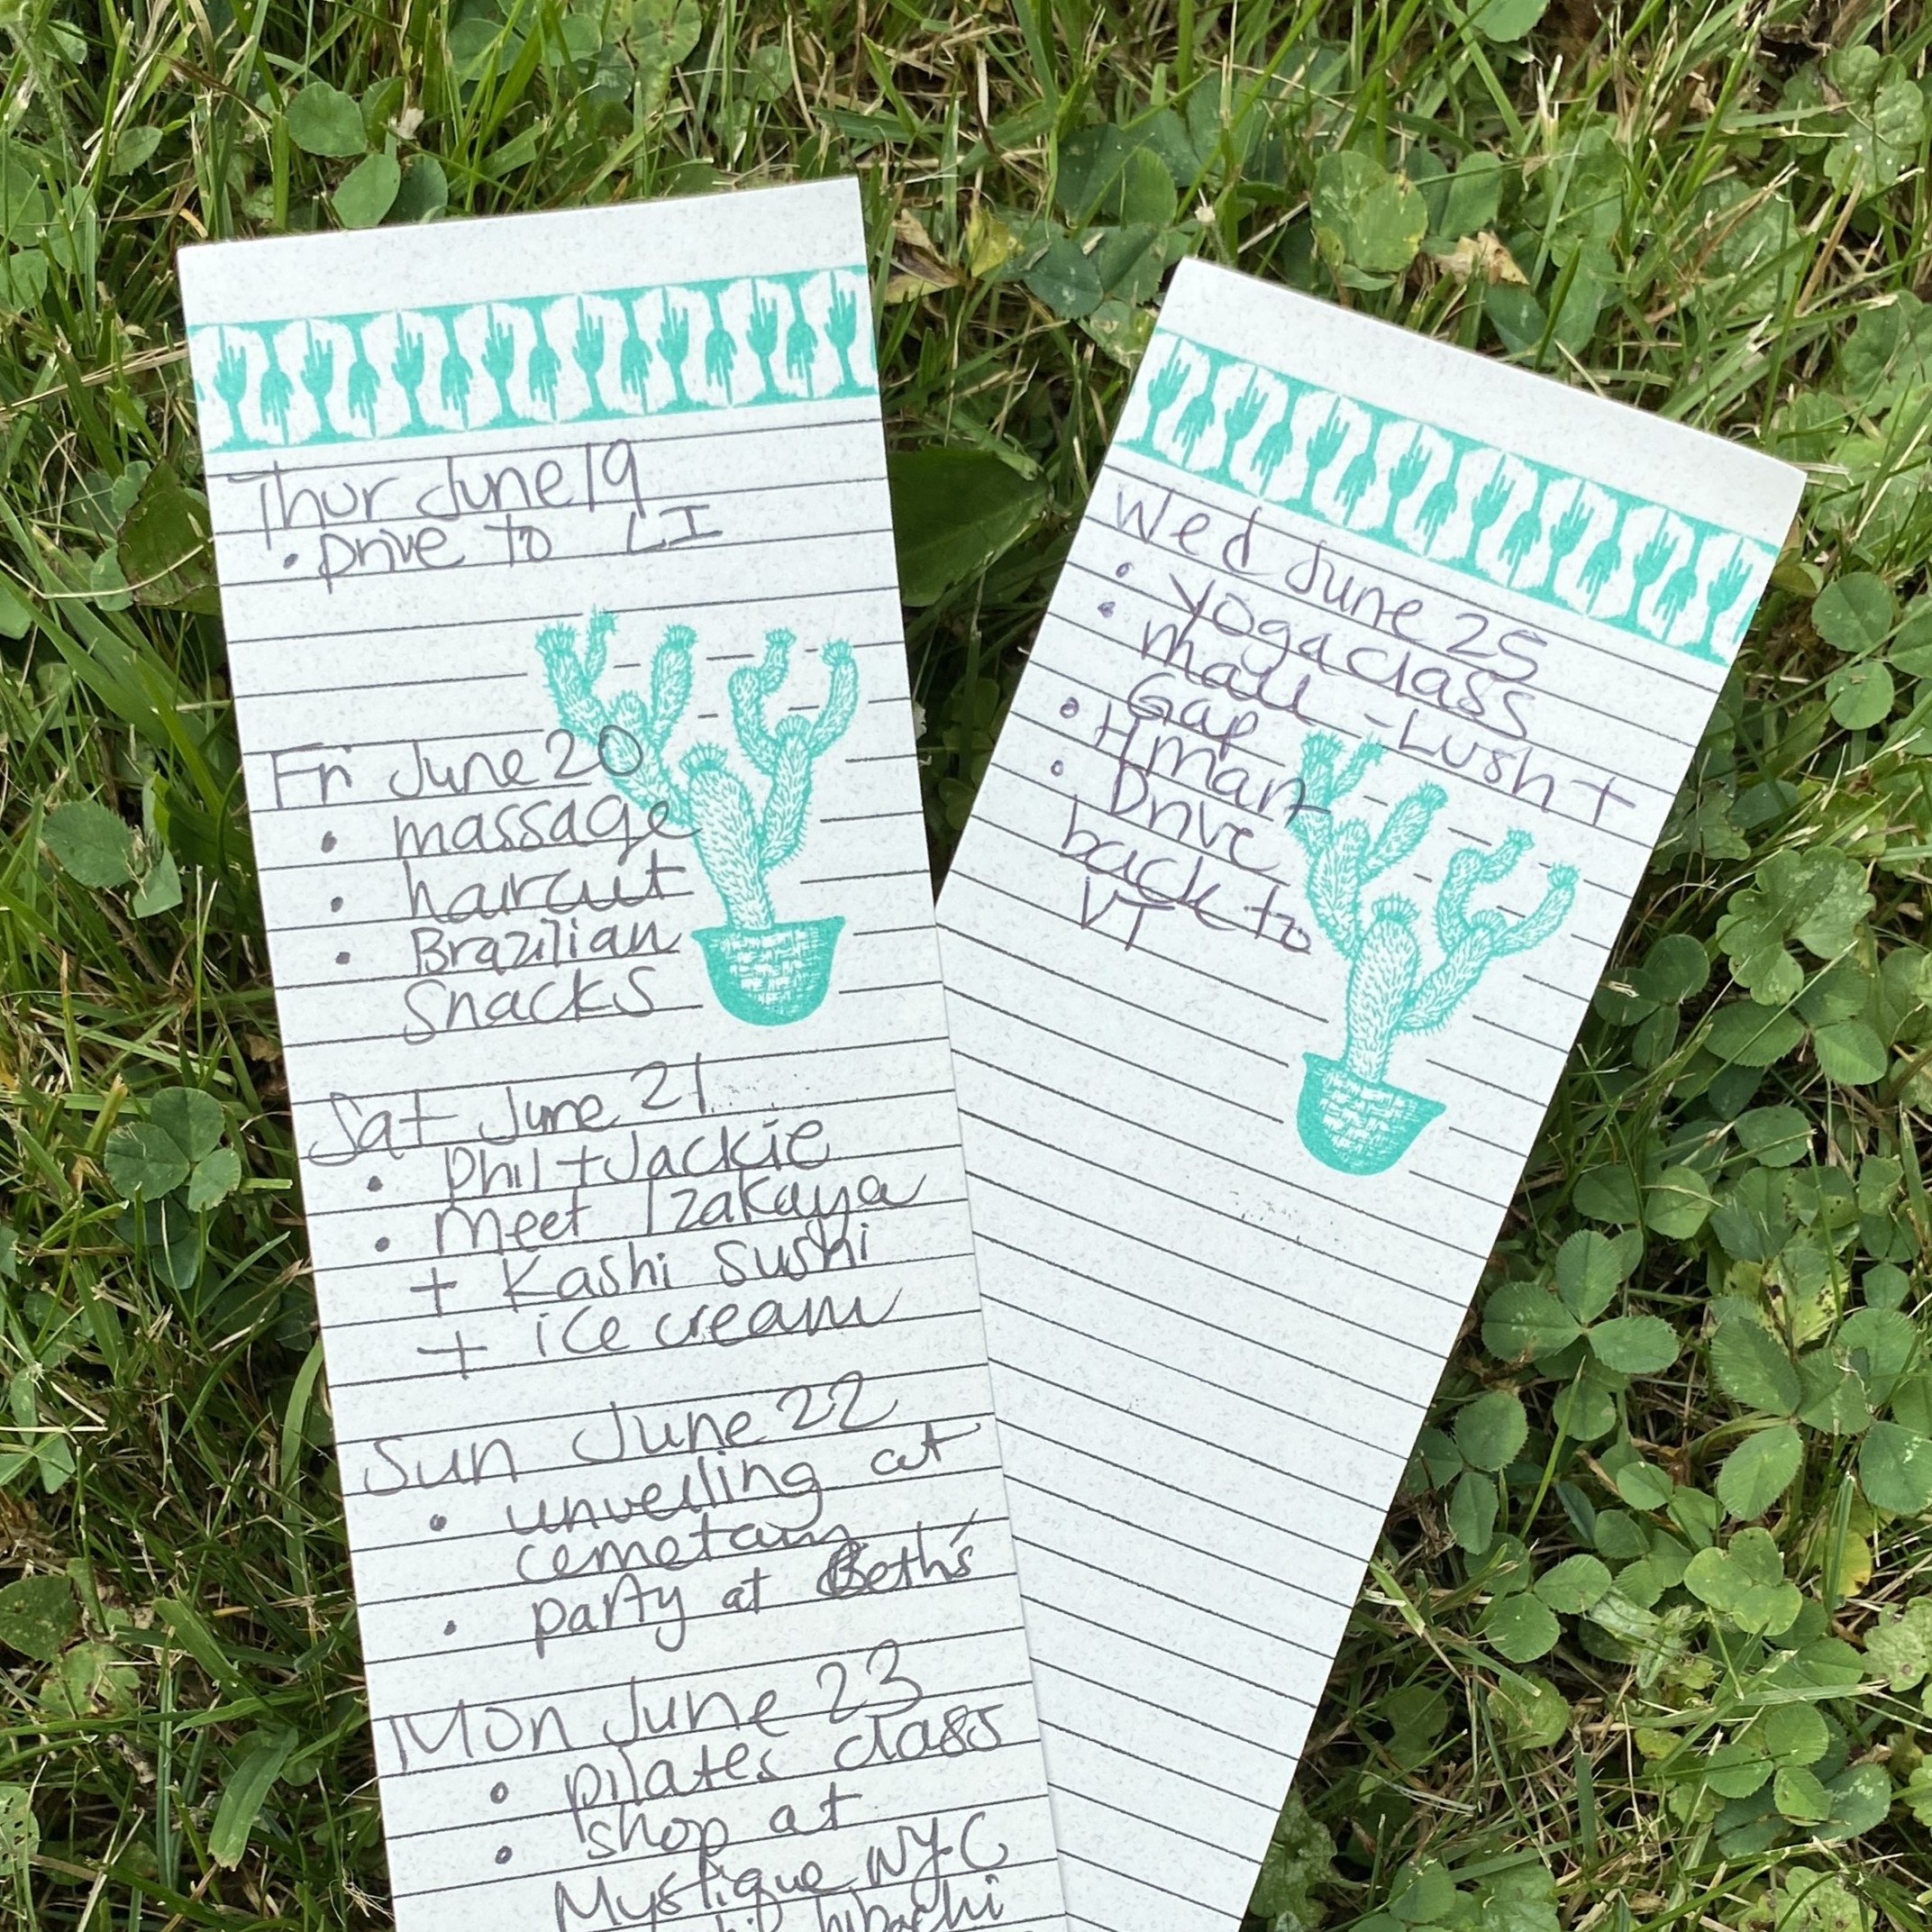 Thur June 19
• Drive to LI
Fri June 20
• massage
• haircut
• Brazilian
snacks
Sat June 21
• Phil + Jackie
• Meet Izakaya
+ Kashi sushi
+ ice cream
Sun June 22
• unveiling at
cemetary
• party at Beth's
Mon June 23
• pilates class
• shop at
Mystique NYC
hibachi
Wed June 25
• yoga class
• mall - Lush +
Gap
• Hmart
• Drive
back to
VT